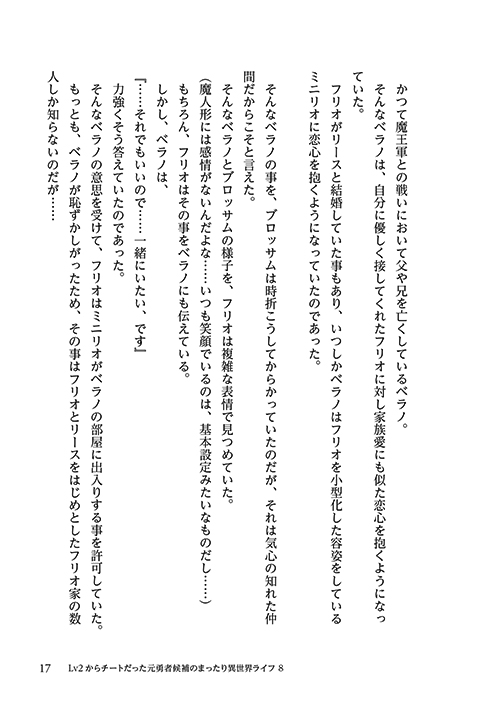 かつて魔王軍との戦いにおいて父や兄を亡くしているベラノ。
そんなベラノは、自分に優しく接してくれたフリオに対し家族愛にも似た恋心を抱くようになっ
ていた。
フリオがリースと結婚していた事もあり、いつしかベラノはフリオを小型化した容姿をしている
ミニリオに恋心を抱くようになっていたのであった。
そんなベラノの事を、ブロッサムは時折こうしてからかっていたのだが、それは気心の知れた仲
間だからこそと言えた。
そんなベラノとブロッサムの様子を、フリオは複雑な表情で見つめていた。
(魔人形には感情がないんだよな……いつも笑顔でいるのは、基本設定みたいなものだし……)
もちろん、フリオはその事をベラノにも伝えている。
しかし、ベラノは、
『……それでもいいので……一緒にいたい、です』
力強くそう答えていたのであった。
そんなベラノの意思を受けて、フリオはミニリオがベラノの部屋に出入りする事を許可していた。
もっとも、ベラノが恥ずかしがったため、その事はフリオとリースをはじめとしたフリオ家の数
人しか知らないのだが……
17 Lv2からチートだった元勇者候補のまったり異世界ライフ 8